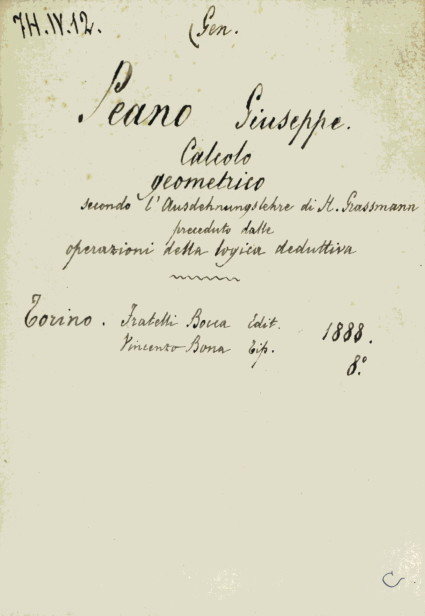 7H.IV.12. (Gen.
Peano Giuseppe.
Calcolo
geometrico
secondo l'Ausdehnungslehre di H. Grassmann
preceduto dalle
operazioni della logica deduttiva
Torino. Fratelli Bocca Edit. 1888.
Vincenzo Bona Tip.
8.º
C